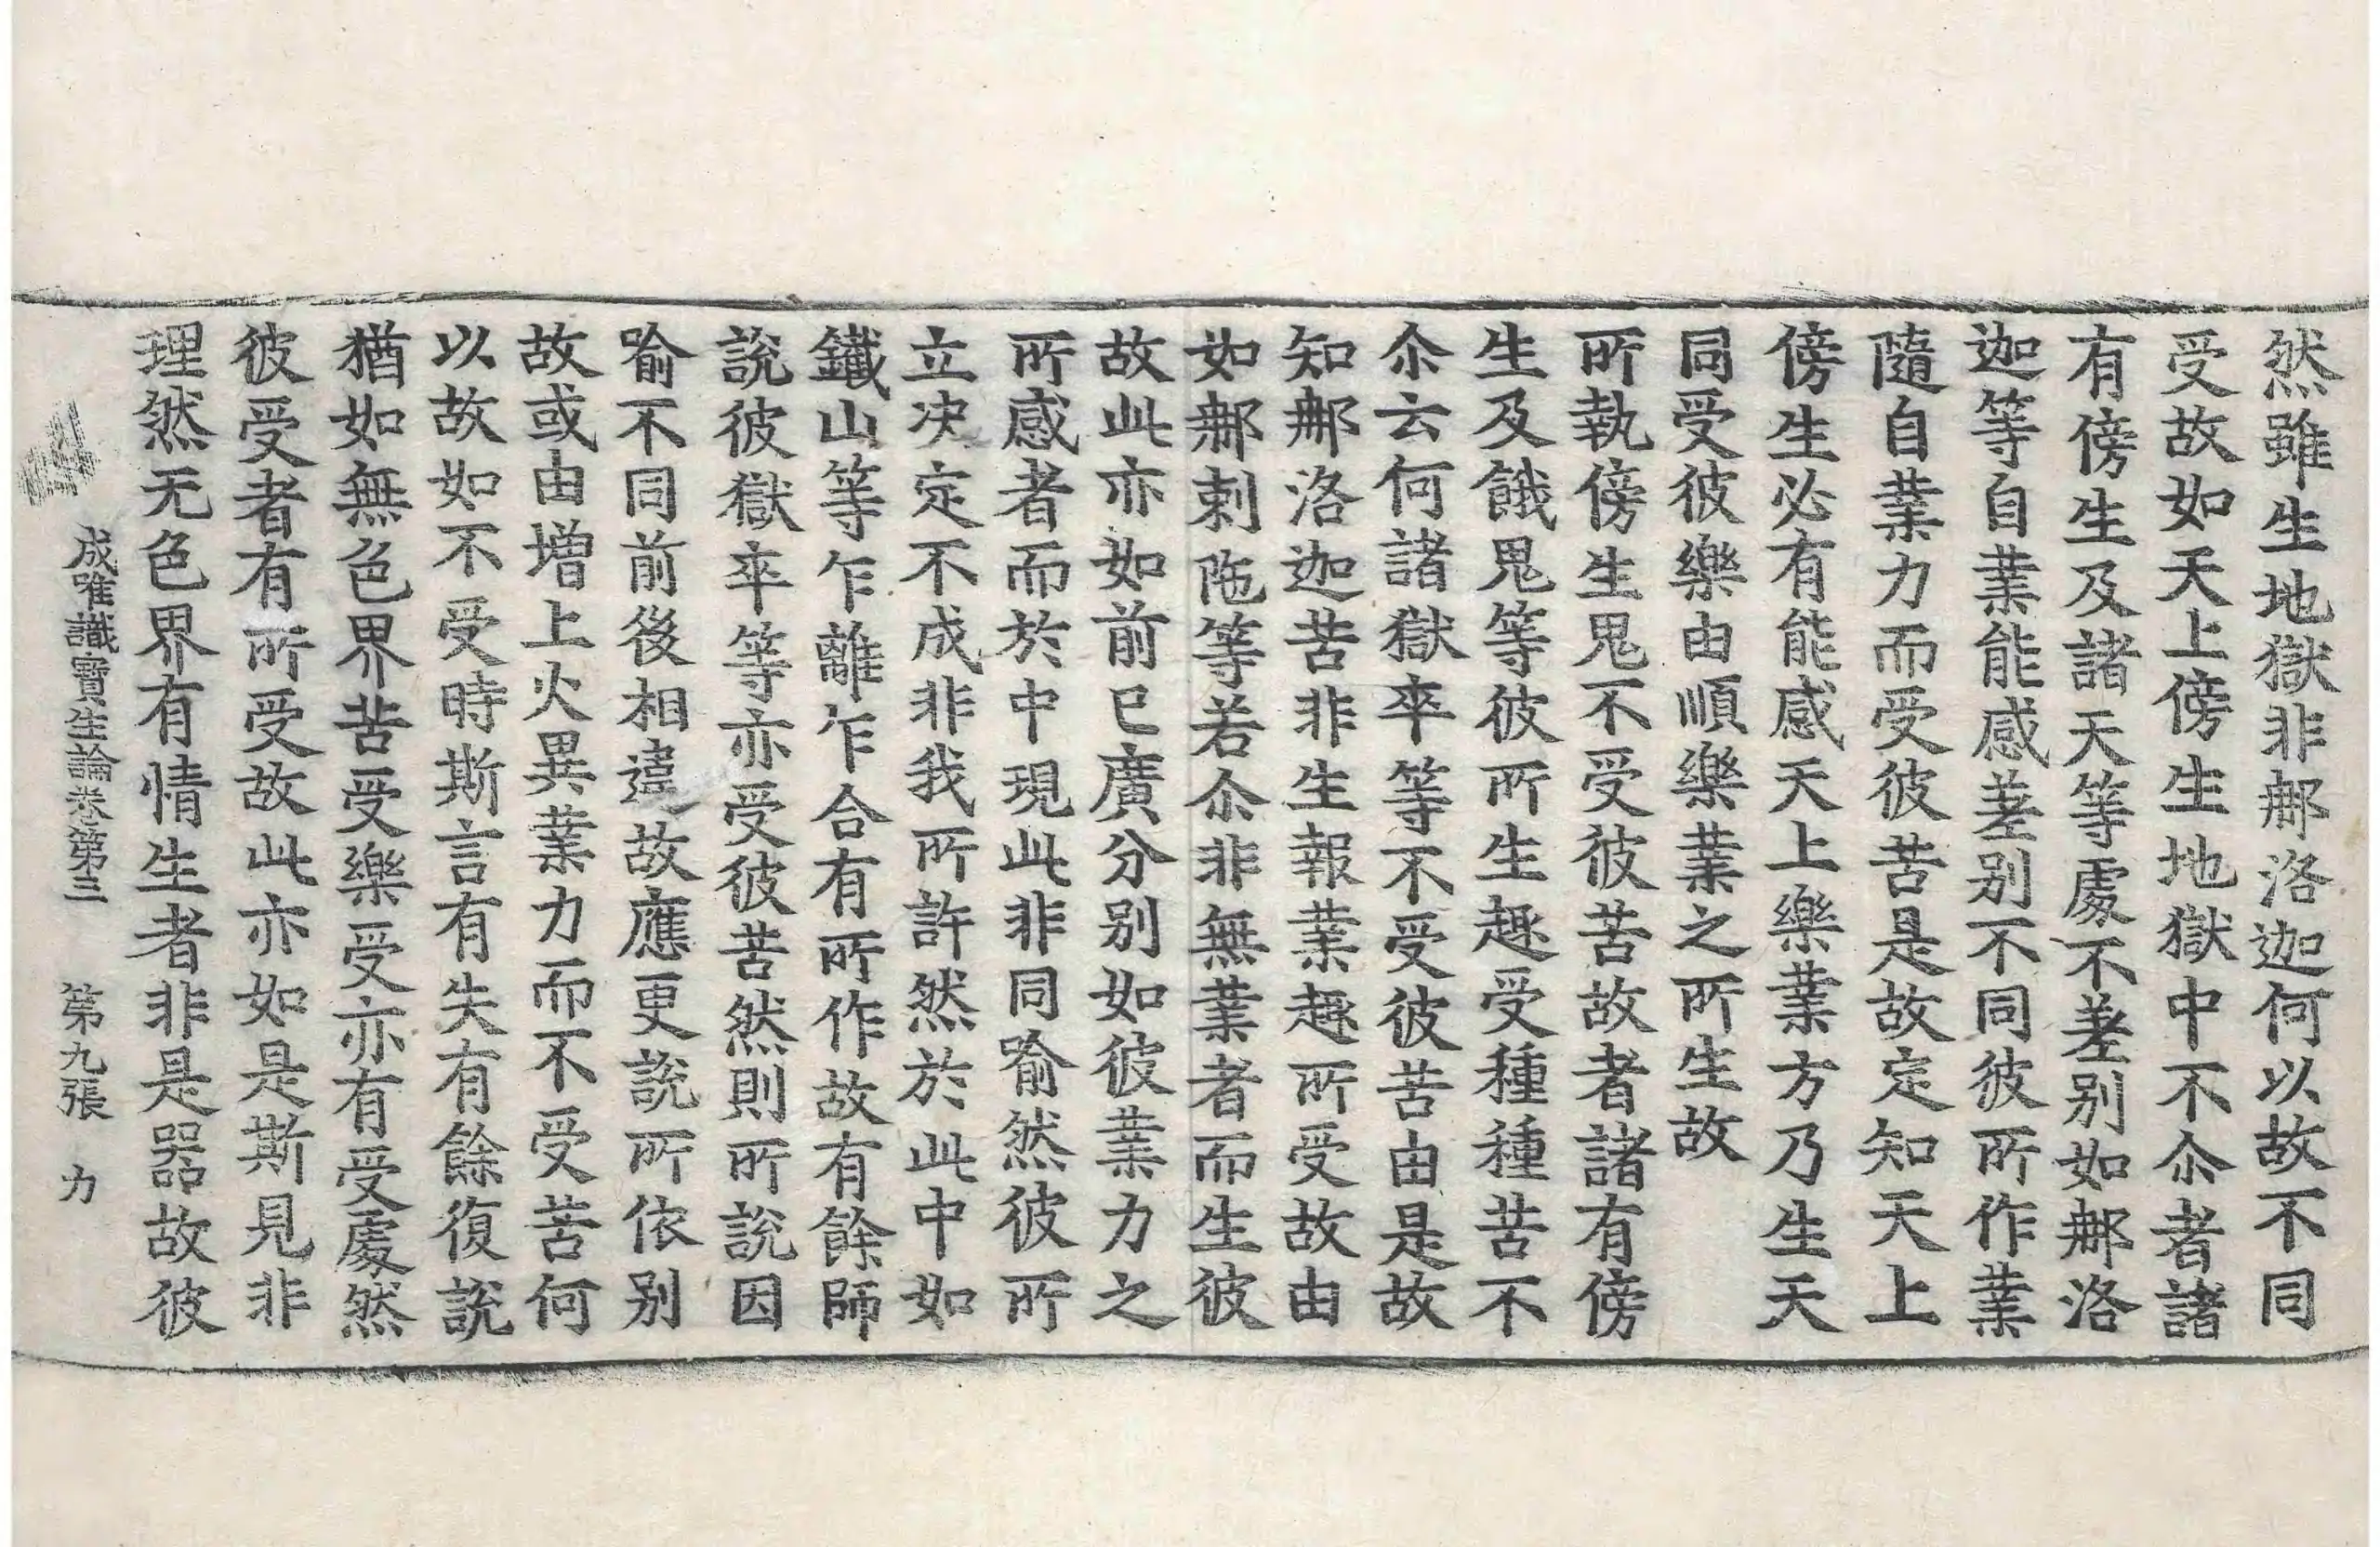 然雖生地獄非𨚗洛迦何以故不同
受故如天上傍生地獄中不尒者諸
有傍生及諸天等處不差别如𨚗洛
迦等自業能感差别不同彼所作業
隨自業力而受彼苦是故定知天上
傍生必有能感天上樂業方乃生天
同受彼樂由順樂業之所生故
所執傍生鬼不受彼苦故者諸有傍
生及餓鬼等彼所生趣受種種苦不
尒云何諸獄卒等不受彼苦由是故
知𨚗洛迦苦非生報業趣所受故由
如𨚗剌陁等若尒非無業者而生彼
故此亦如前已廣分别如彼業力之
所感者而於中現此非同喻然彼所
立决定不成非我所許然於此中如
鐵山等乍離乍合有所作故有餘師
說彼獄卒等亦受彼苦然則所說因
喻不同前後相違故應更說所依别
故或由增上火異業力而不受苦何
以故如不受時斯言有失有餘復說
猶如無色界苦受樂受亦有受處然
彼受者有所受故此亦如是斯見非
理然无色界有情生者非是器故彼
成唯識寶生論卷第三 第九張 力